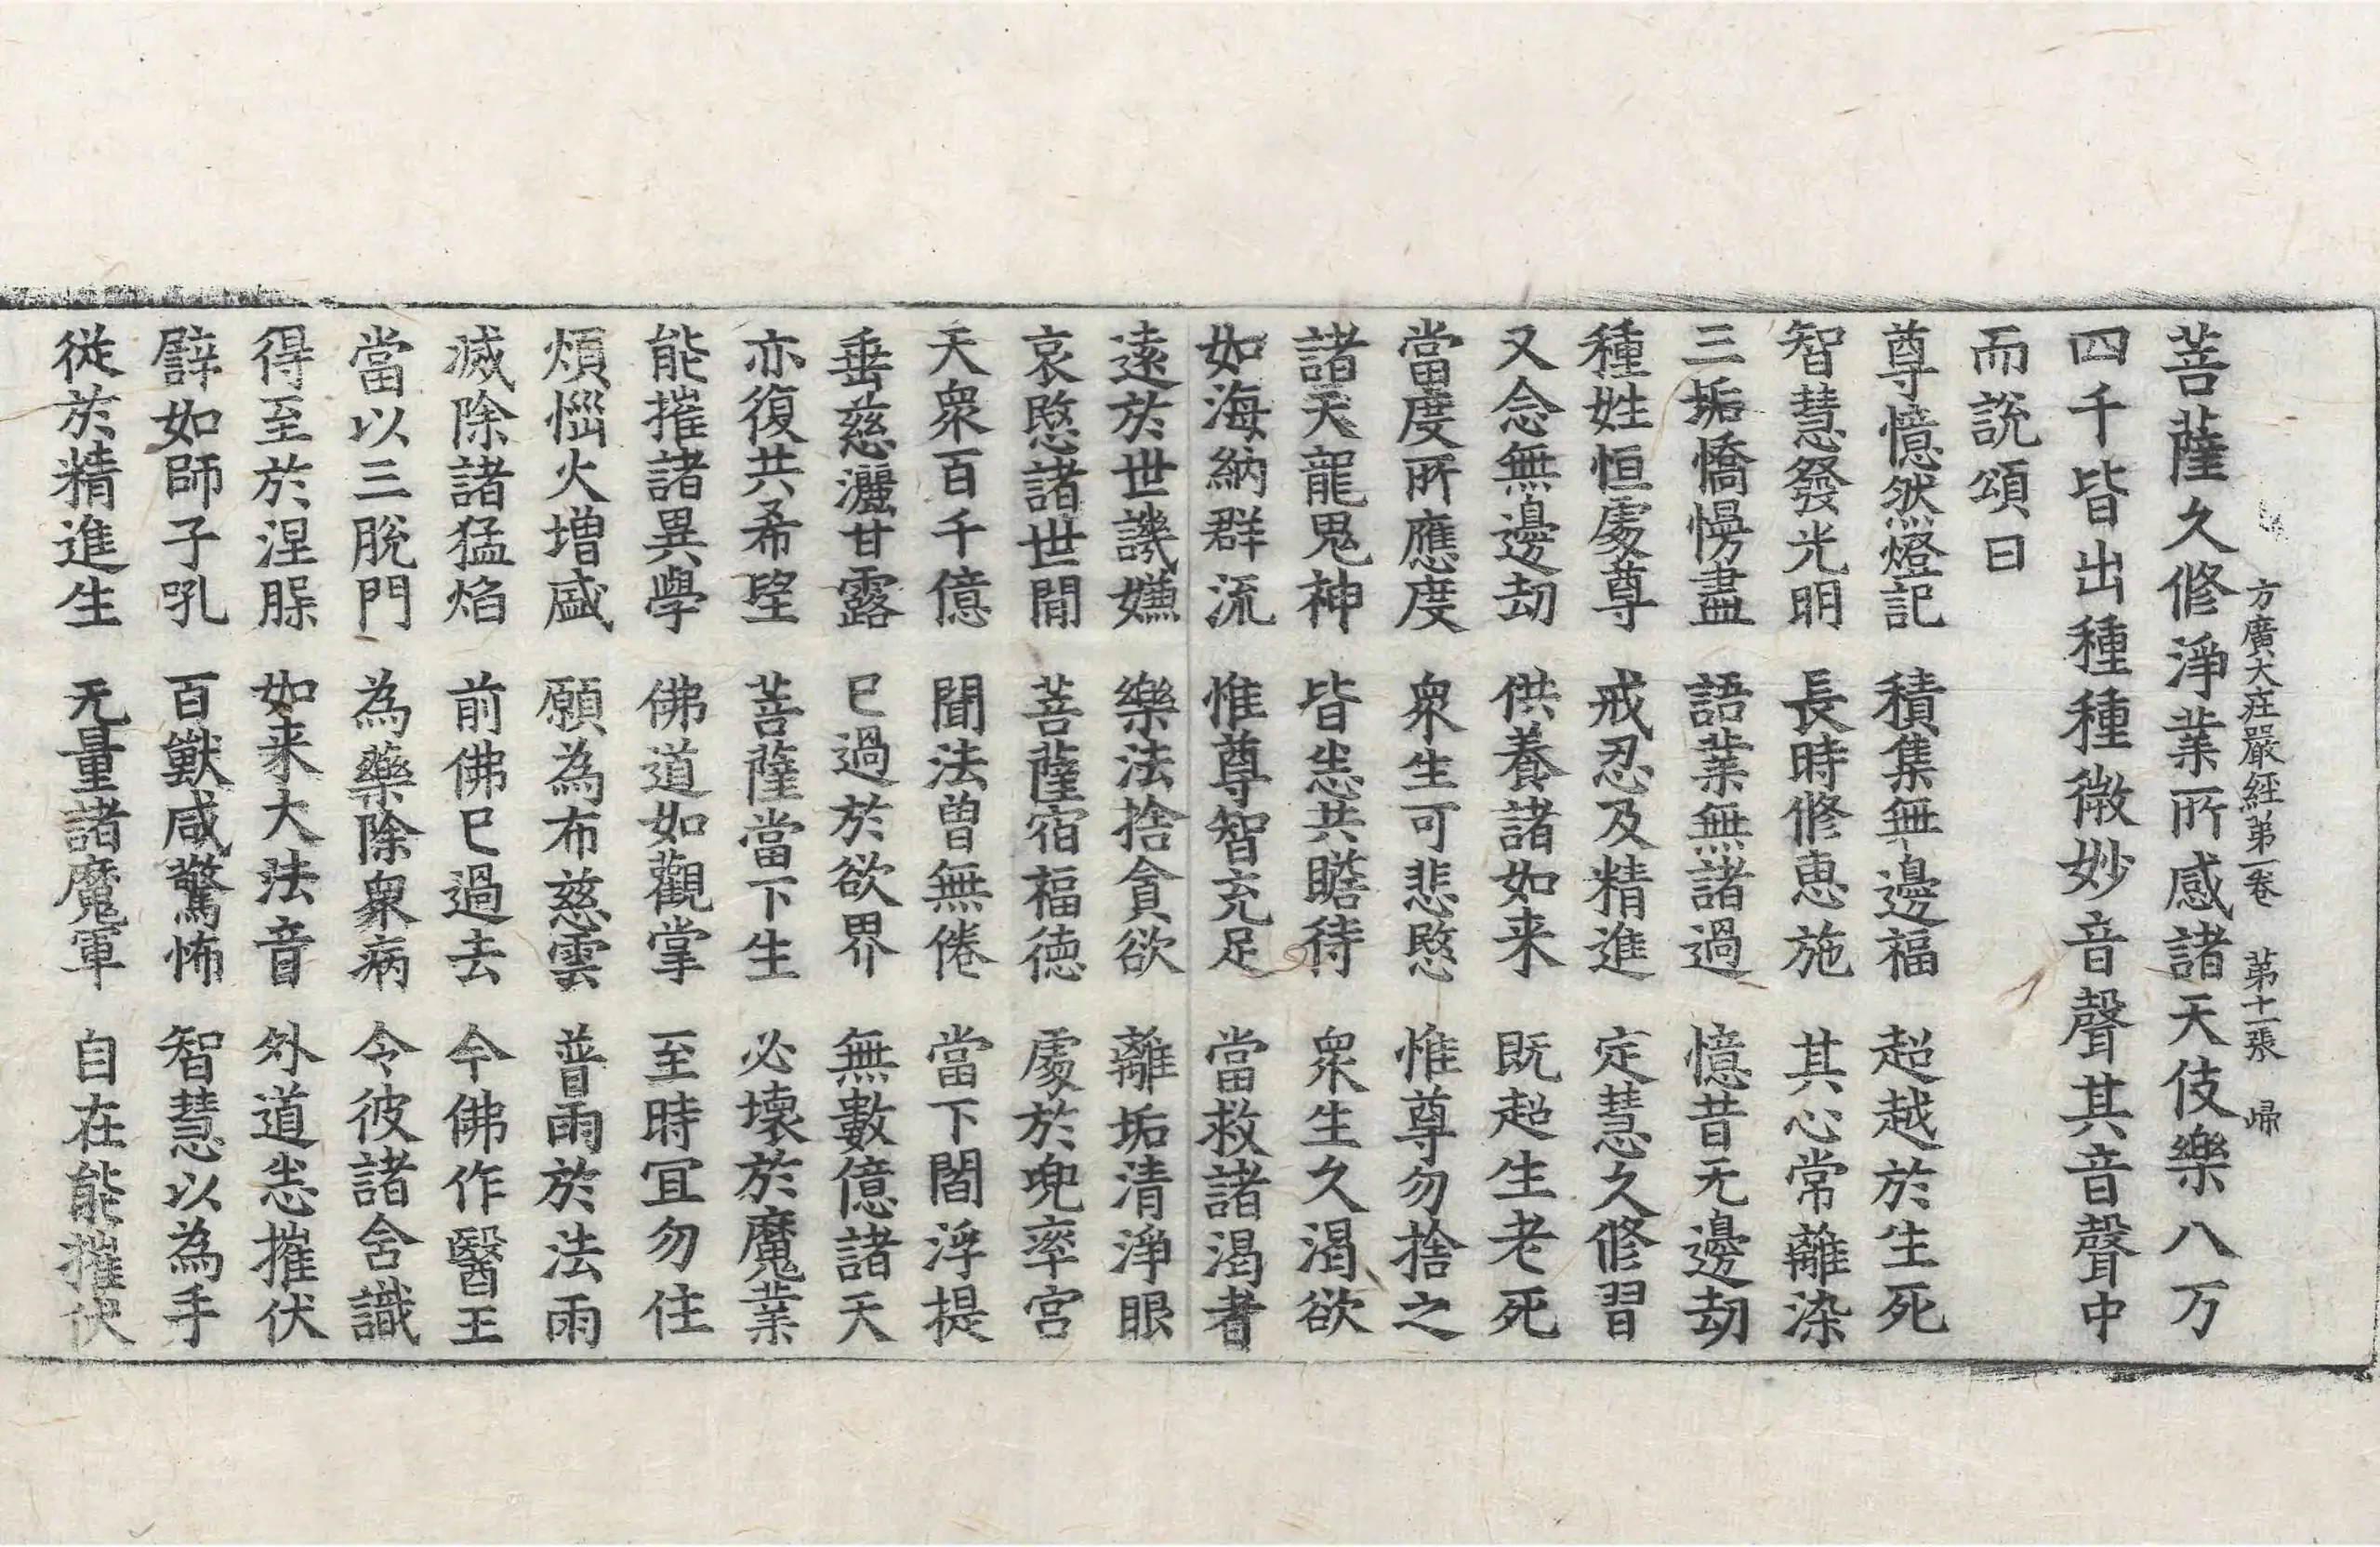 方廣大庄嚴經第一卷 第十一張 㷌
菩薩久修淨業所感諸天伎樂八万
四千皆出種種微妙音聲其音聲中
而說頌曰
尊憶然燈記 積集無邊福 超越於生死
智慧發光明 長時修惠施 其心常離染
三垢憍慢盡 語業無諸過 憶昔无邊劫
種姓恒處尊 戒忍及精進 定慧久修習
又念無邊劫 供養諸如来 既超生老死
當度所應度 衆生可悲愍 惟尊勿捨之
諸天龍鬼神 皆悉共瞻待 衆生久渴欲
如海納群流 惟尊智充足 當救諸渴者
遠於世譏嫌 樂法捨貪欲 離垢清淨眼
哀愍諸世閒 菩薩宿福德 處於兜率宮
天衆百千億 聞法曾無倦 當下閻浮提
垂慈灑甘露 已過於欲界 無數億諸天
亦復共希望 菩薩當下生 必壞於魔業
能摧諸異學 佛道如觀掌 至時宜勿住
煩惱火增盛 願為布慈雲 普雨於法雨
滅除諸猛焰 前佛已過去 今佛作醫王
當以三脫門 為藥除衆病 令彼諸含識
得至於涅槃 如来大法音 外道悉摧伏
辟如師子吼 百獸咸驚怖 智慧以為手
從於精進生 无量諸魔軍 自在能摧伏